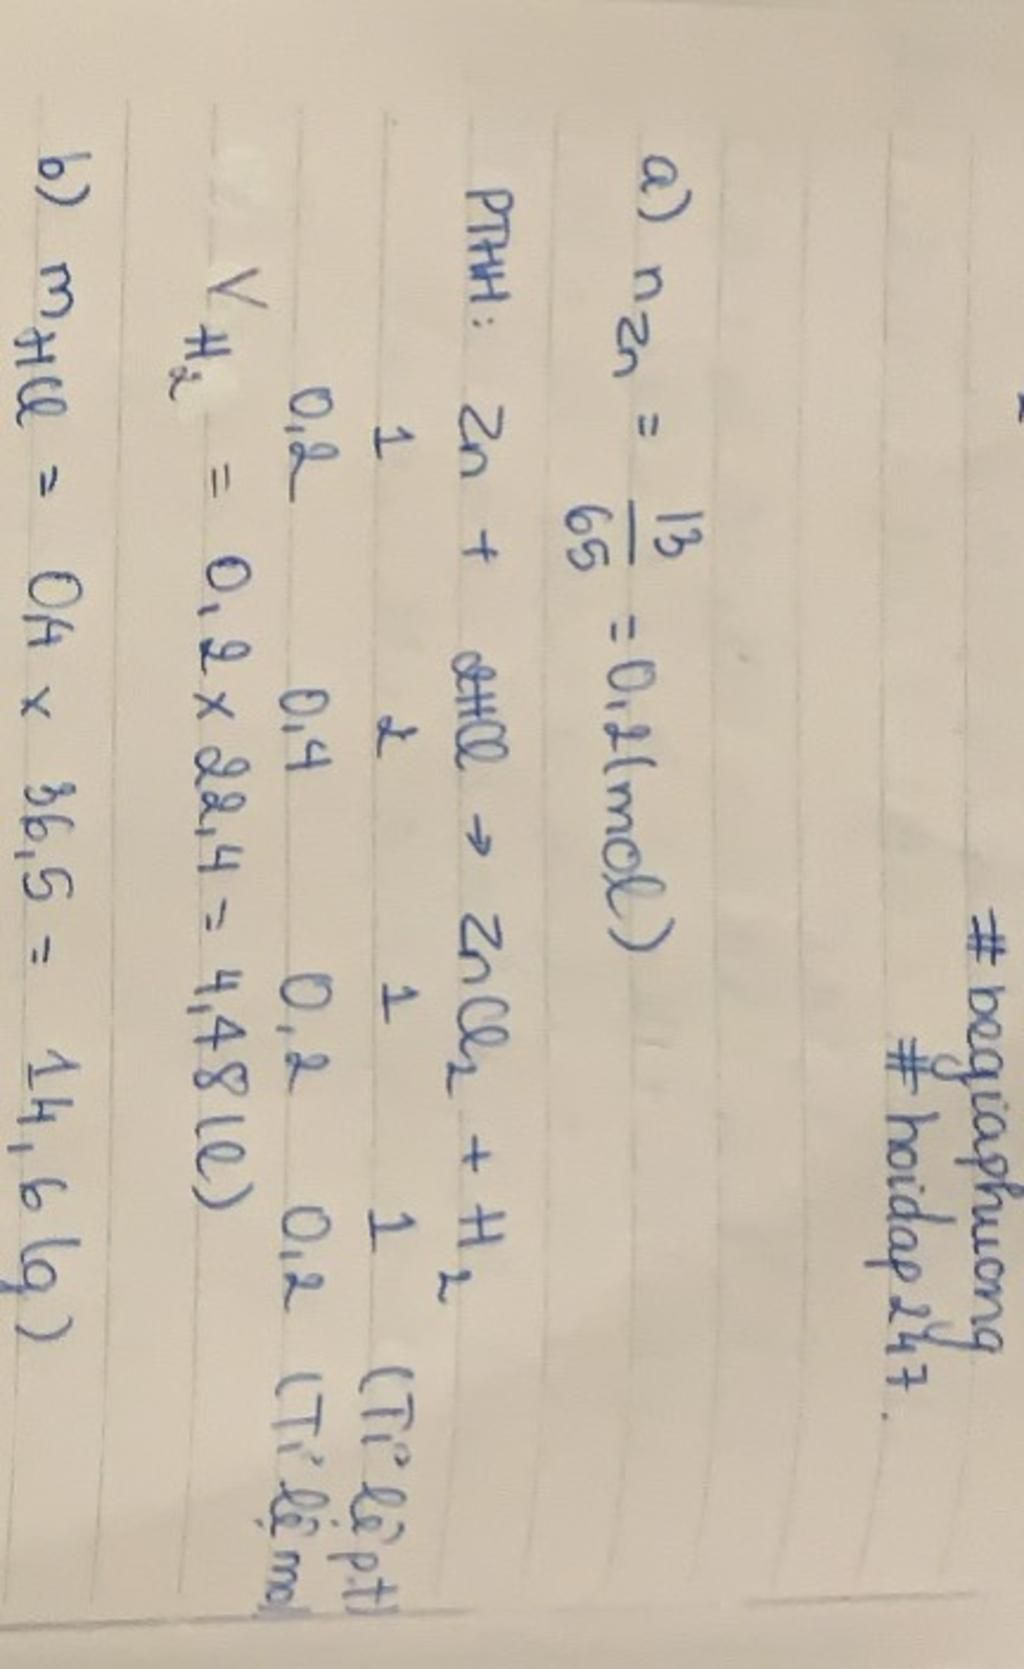 #begiaphuong
#hoidap247.
a) nZn = 13/65 = 0,2(mol)
PTHH: Zn + 2HCl → ZnCl₂ + H₂
1 2 1 1 (Tỉ lệ pt)
0,2 0,4 0,2 0,2 (Tỉ lệ mol
V H₂ = 0,2 x 22,4 = 4,48(l)
b) mHCl = 0,4 x 36,5 = 14,6 (g)